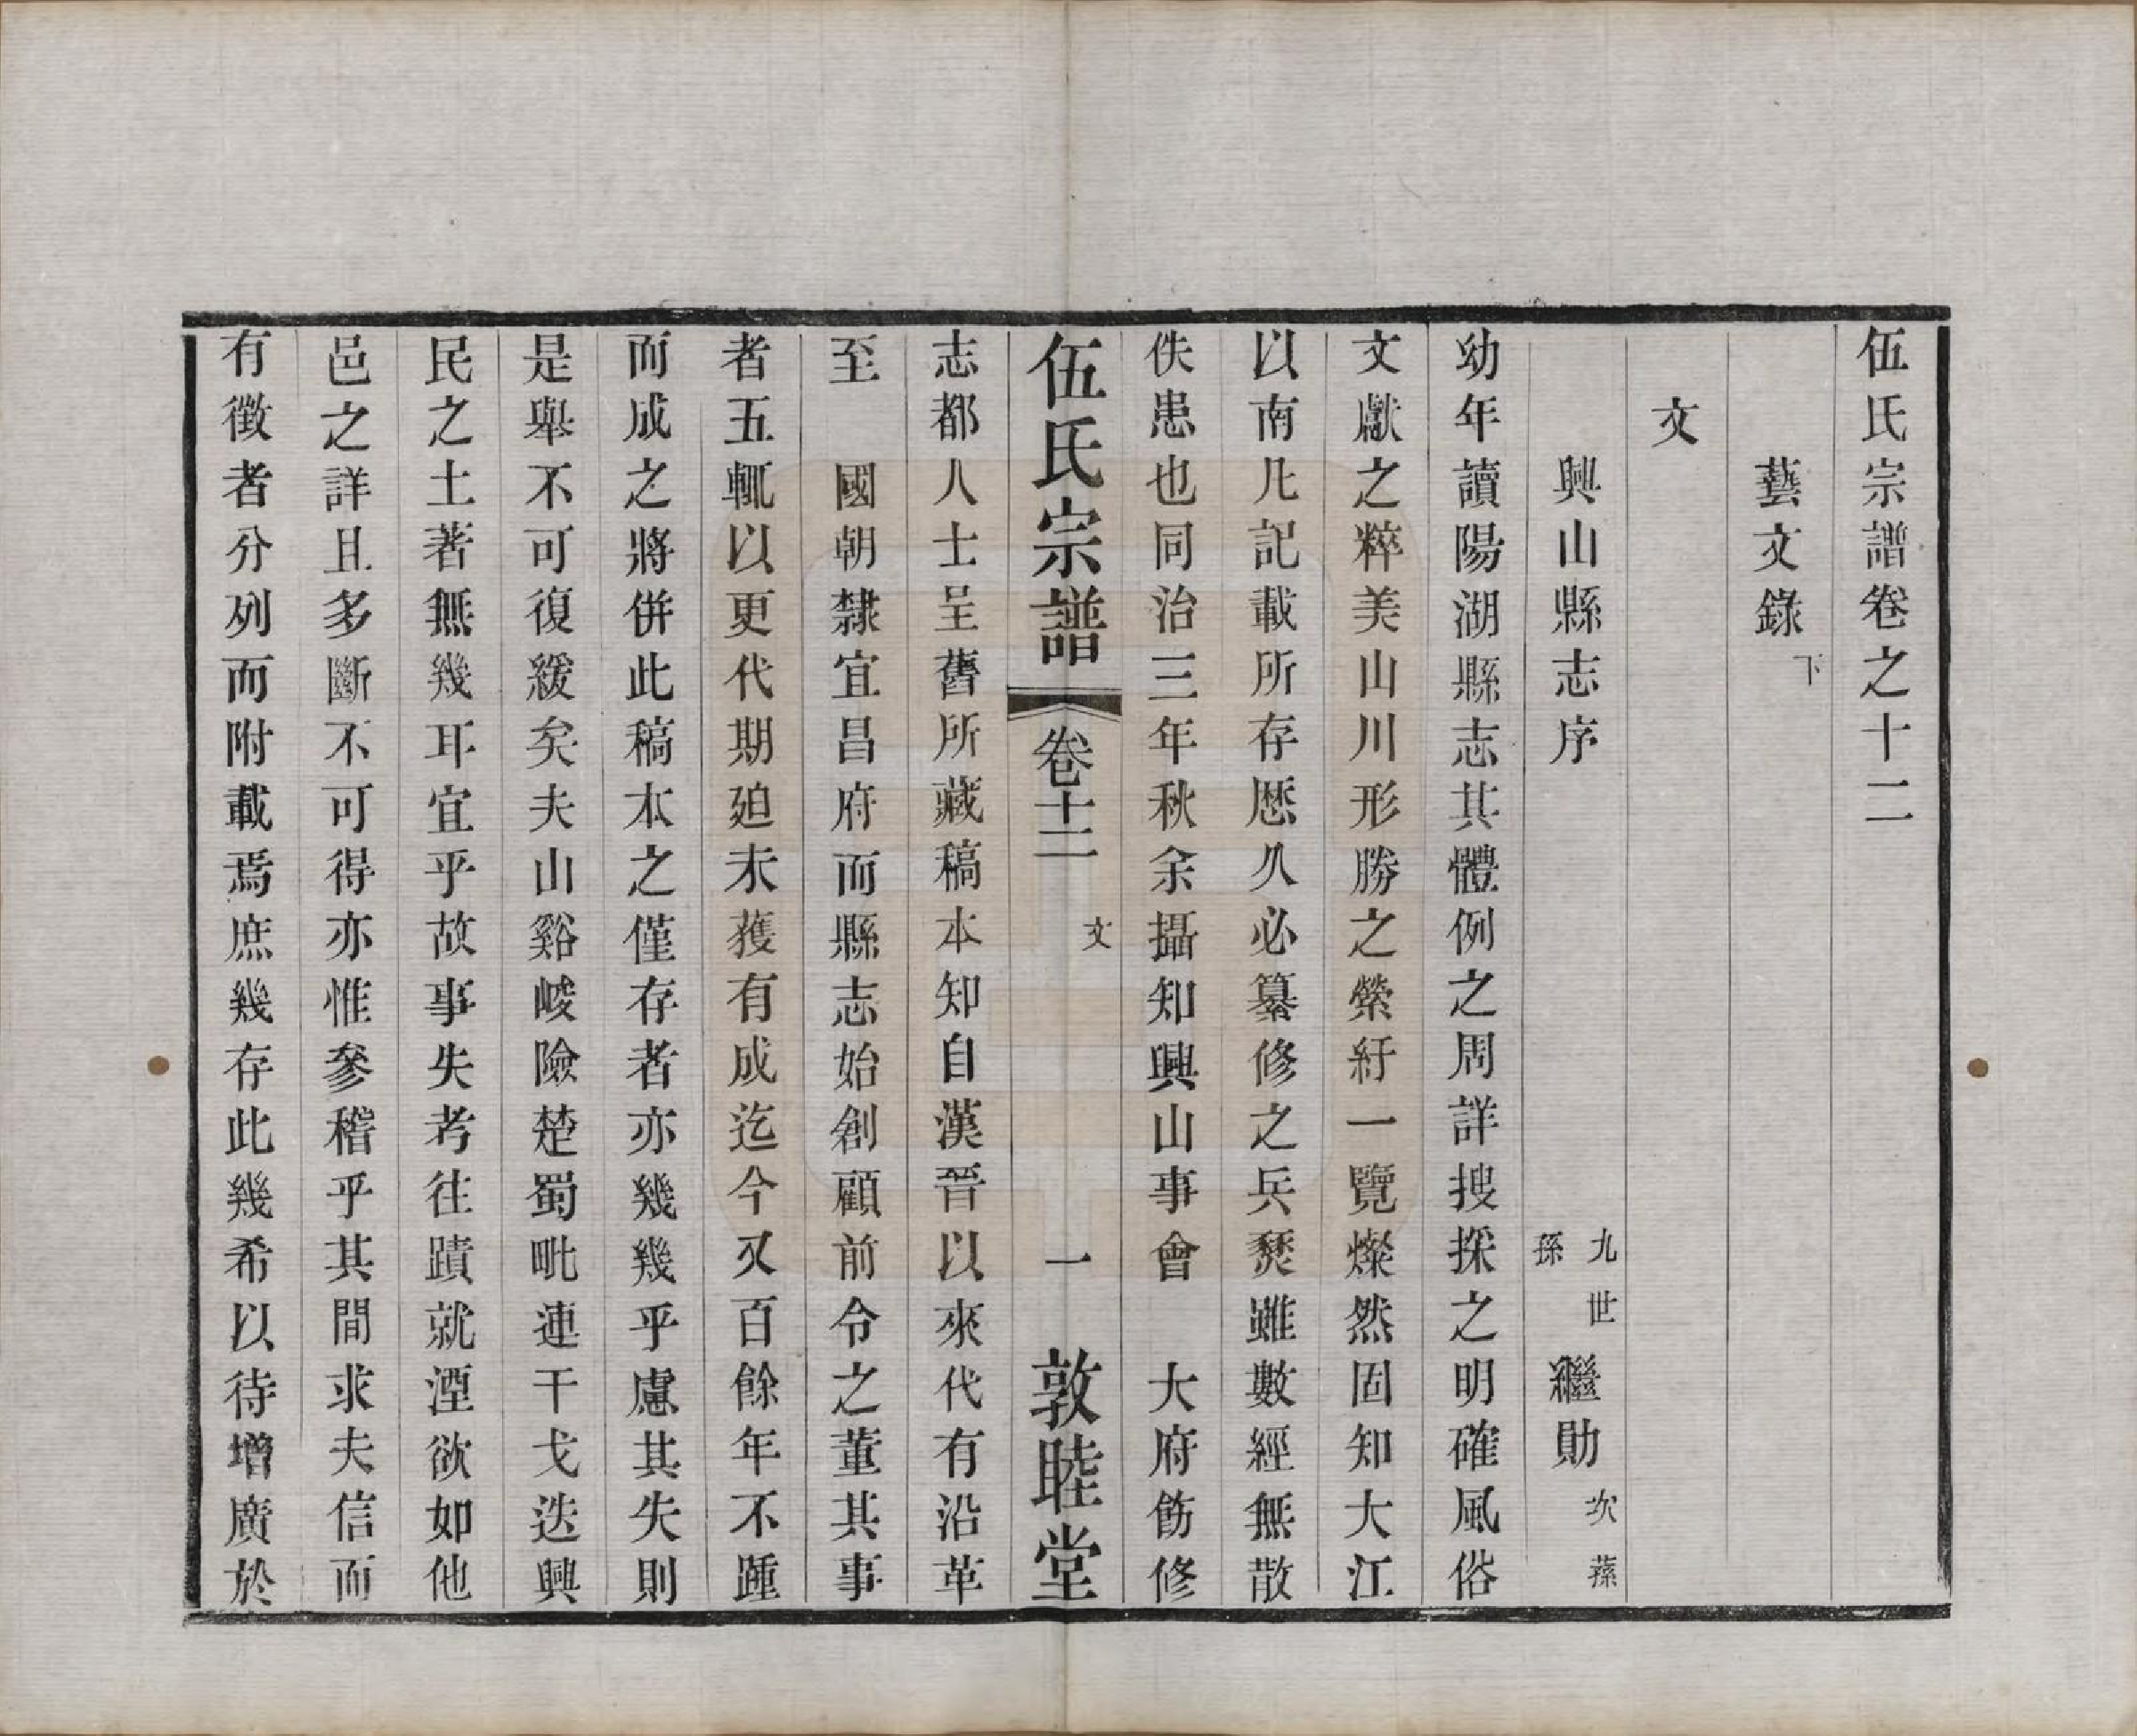 伍氏宗譜卷之十二
藝文錄下
文
興山縣志序 九世孫 繼勛 次蓀
幼年讀陽湖縣志其體例之周詳搜探之明確風俗
文獻之粹美山川形勝之縈紆一覽燦然固知大江
以南凡記載所存歷久必纂修之兵燹雖數經無散
佚患也同治三年秋余攝知興山事會　大府飭修
伍氏宗譜 卷十二 文 一 敦睦堂
志都人士呈舊所藏稿本知自漢晉以來代有沿革
至　國朝隸宜昌府而縣志始創顧前令之董其事
者五輒以更代期廹未獲有成迄今又百餘年不踵
而成之將併此稿本之僅存者亦幾幾乎慮其失則
是舉不可復緩矣夫山谿峻險楚蜀毗連干戈迭興
民之土著無幾耳宜乎故事失考往蹟就湮欲如他
邑之詳且多斷不可得亦惟參稽乎其間求夫信而
有徵者分列而附載焉庶幾存此幾希以待增廣於